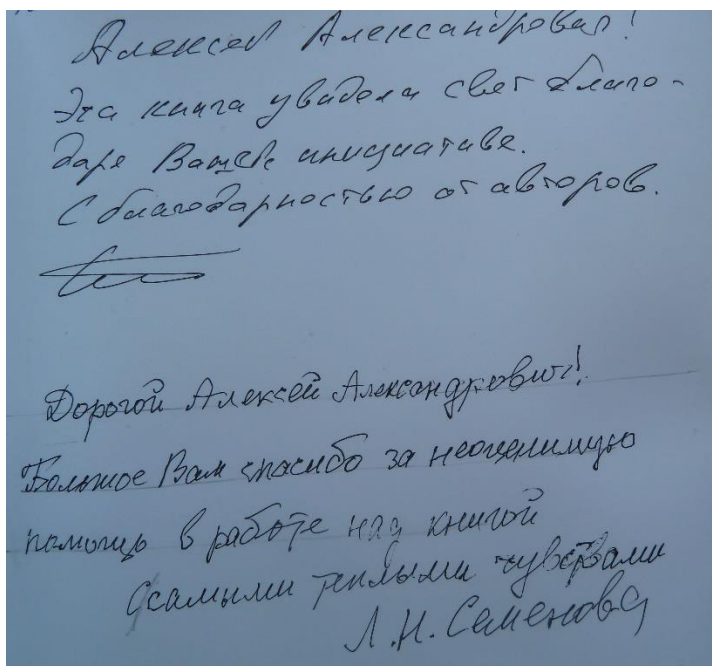 Алексей Александрович!
Эта книга увидела свет благо-
даря Вашей инициативе.
С благодарностью от авторов.
Дорогой Алексей Александрович!
Большое Вам спасибо за неоценимую
помощь в работе над книгой
С самыми теплыми чувствами
Л.Н. Семенова